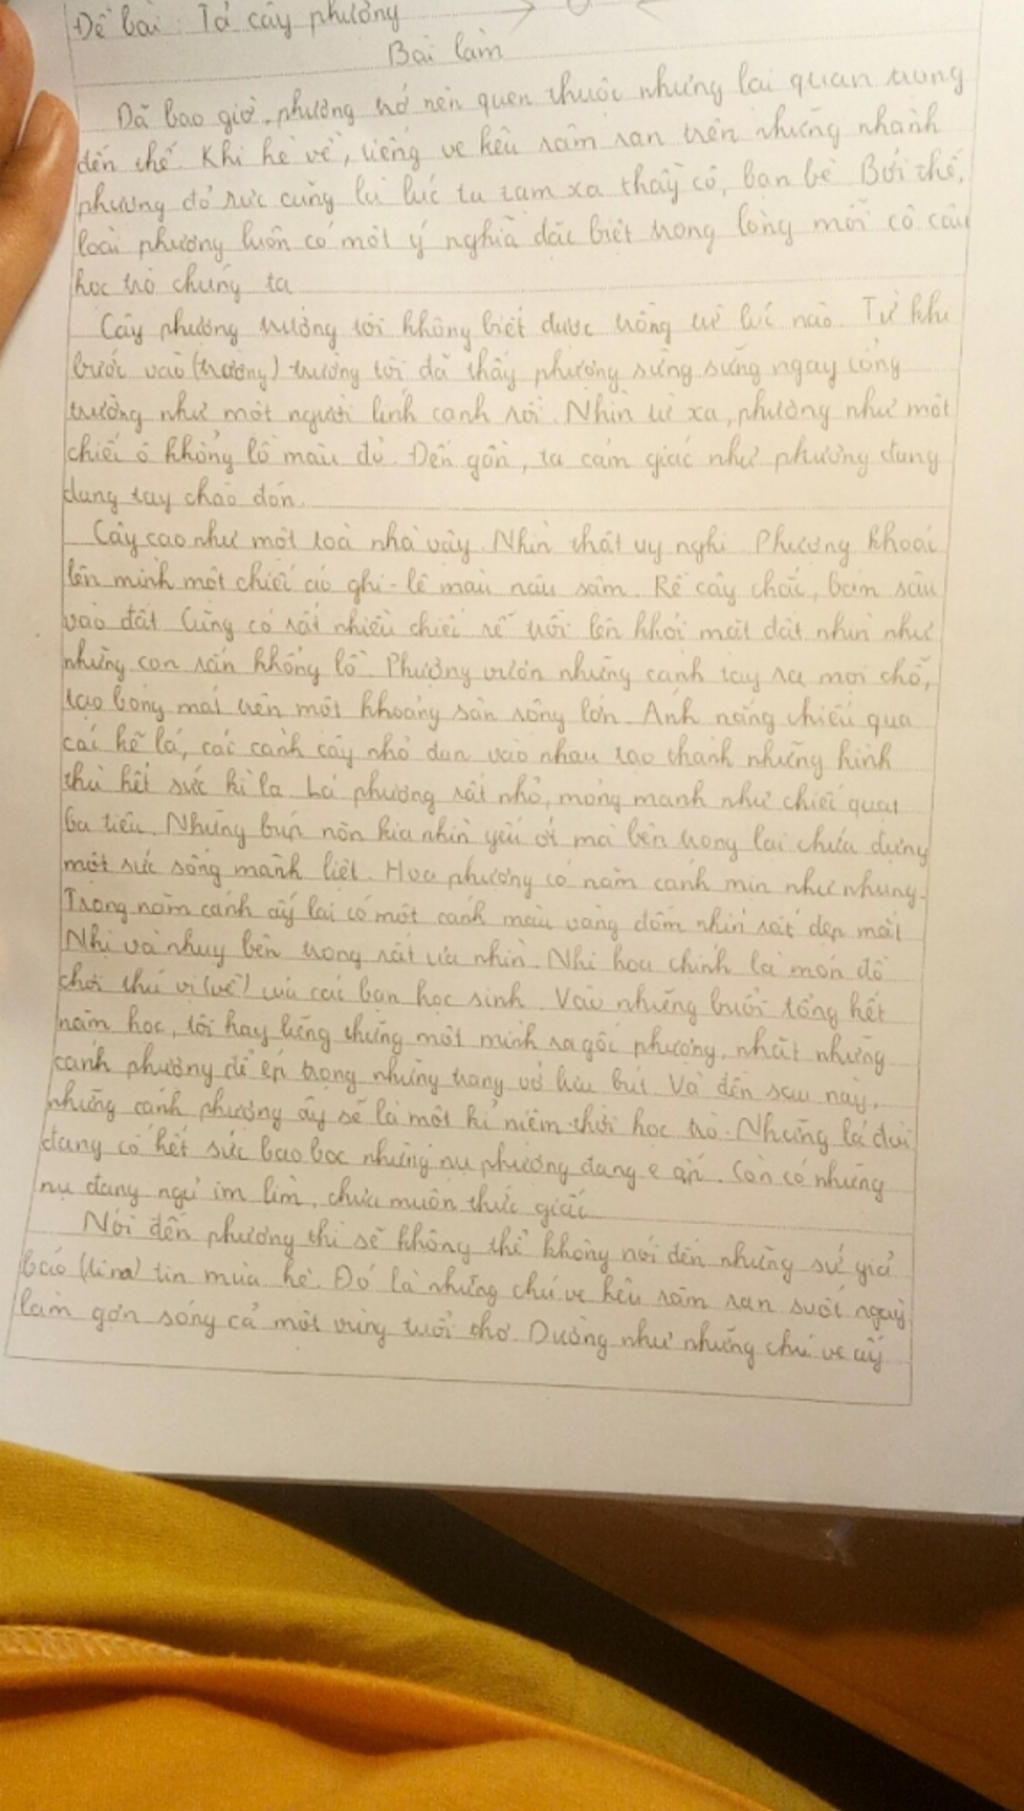 Đề bài: Tả cây phượng
Bài làm
Đã bao giờ, phượng trở nên quen thuộc nhưng lại quan trọng
đến thế. Khi hè về, tiếng ve kêu râm ran trên những nhành
phượng đỏ rực cũng là lúc ta tạm xa thầy cô, bạn bè. Bởi thế,
loài phượng luôn có một ý nghĩa đặc biệt trong lòng mỗi cô cậu
học trò chúng ta.
Cây phượng trường tôi không biết được trồng từ lúc nào. Từ khi
bước vào (trường) trường tôi đã thấy phượng sừng sững ngay cổng
trường như một người lính canh rồi. Nhìn từ xa, phượng như một
chiếc ô khổng lồ màu đỏ. Đến gần, ta cảm giác như phượng đang
dang tay chào đón.
Cây cao như một toà nhà vậy. Nhìn thật uy nghi. Phượng khoác
lên mình một chiếc áo ghi-lê màu nâu sẫm. Rễ cây chắc, bám sâu
vào đất. Cũng có rất nhiều chiếc rễ trồi lên khỏi mặt đất nhìn như
những con rắn khổng lồ. Phượng vươn những cánh tay ra mọi chỗ,
tạo bóng mát trên một khoảng sân rộng lớn. Ánh nắng chiếu qua
các kẽ lá, các cành cây nhỏ đan vào nhau tạo thành những hình
thù hết sức kì lạ. Lá phượng rất nhỏ, mỏng manh như chiếc quạt
ba tiêu. Những búp nõn kia nhìn yếu ớt mà bên trong lại chứa đựng
một sức sống mãnh liệt. Hoa phượng có năm cánh mịn như nhung.
Trong năm cánh ấy lại có một cánh màu vàng đốm nhìn rất đẹp mắt.
Nhị và nhuỵ bên trong rất ưa nhìn. Nhị hoa chính là món đồ
chơi thú vị (về) của các bạn học sinh. Vào những buổi tổng kết
năm học, tôi hay lững thững một mình ra gốc phượng, nhặt những
cánh phượng để ép trong những trang vở lưu bút. Và đến sau này,
những cánh phượng ấy sẽ là một kỉ niệm thời học trò. Những lá đài
đang cố hết sức bao bọc những nụ phượng đang e ấp. Còn có những
nụ đang ngủ im lìm, chưa muốn thức giấc.
Nói đến phượng thì sẽ không thể không nói đến những sứ giả
báo tin mùa hè. Đó là những chú ve kêu râm ran suốt ngày
làm gợn sóng cả một vùng tuổi thơ. Dường như những chú ve ấy